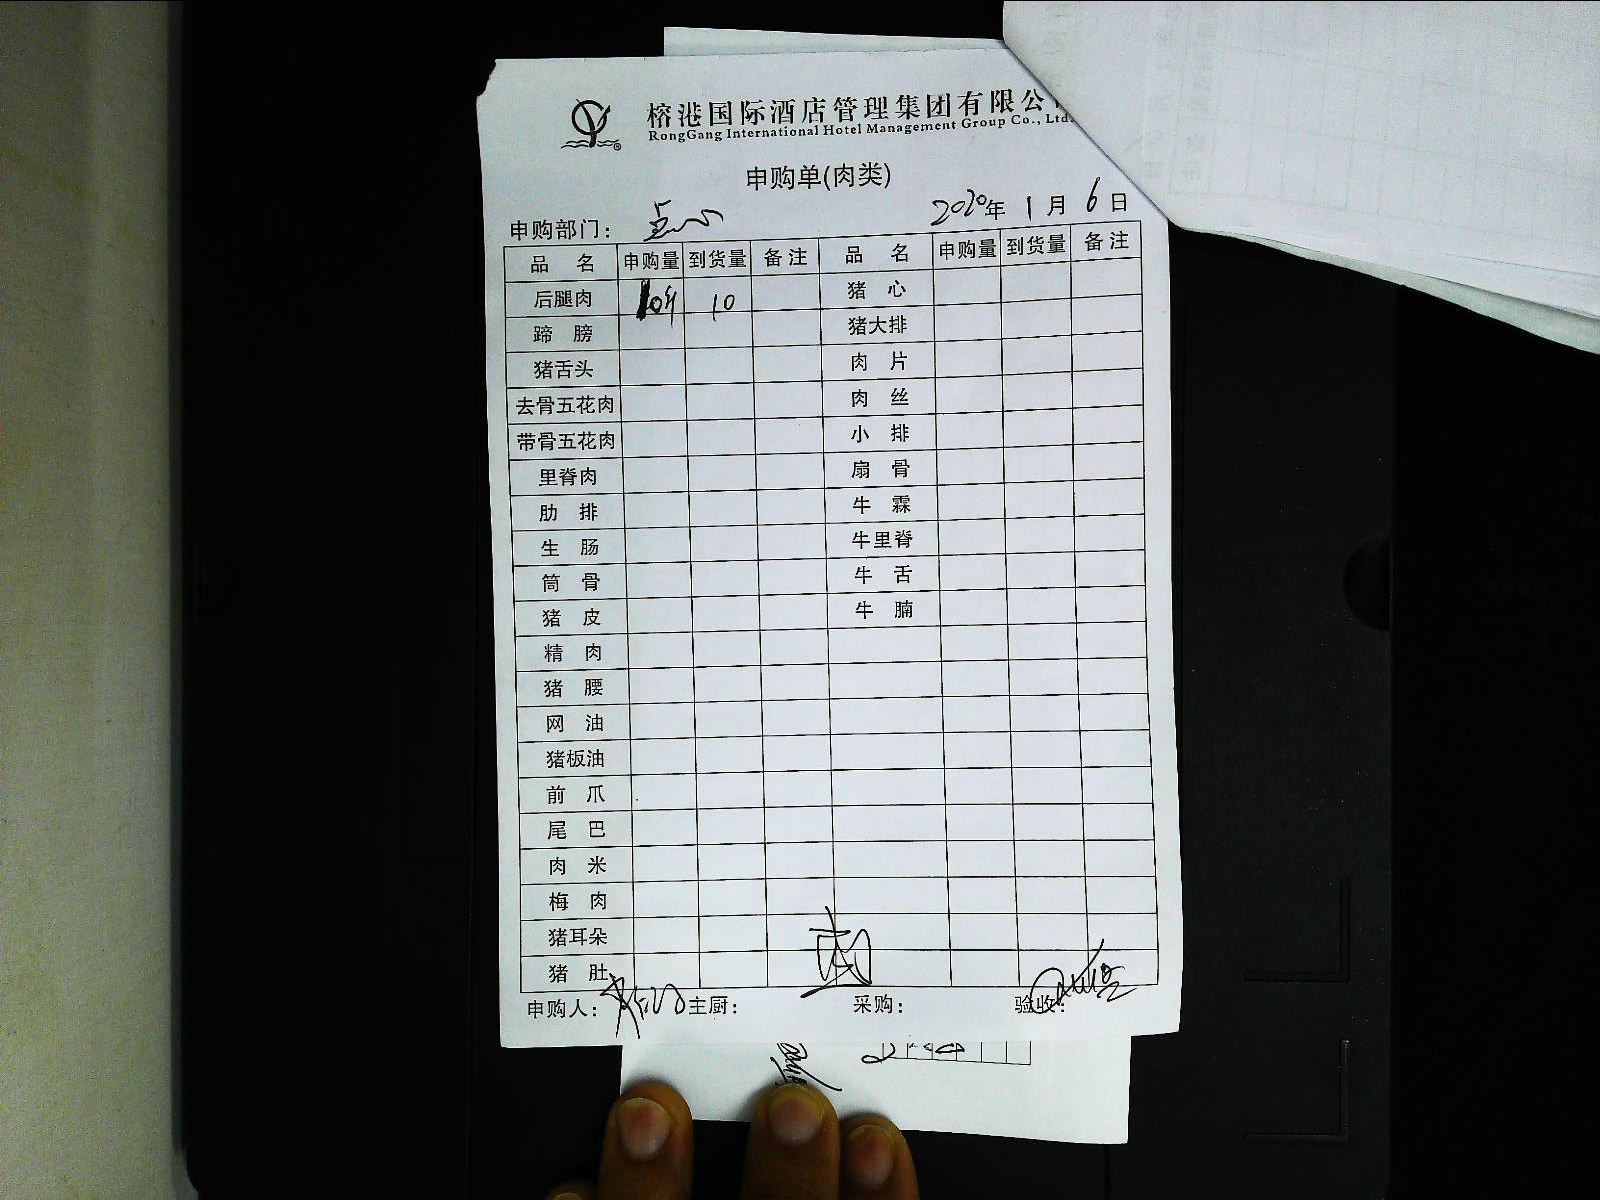 榕港国际酒店管理集团有限公
RongGang International Hotel Management Group Co., Ltd.
申购单(肉类)
申购部门： 点心 2020年 1月 6日
品 名 申购量 到货量 备注 品 名 申购量 到货量 备注
后腿肉 10斤 10 猪 心
蹄 膀 猪大排
猪舌头 肉 片
去骨五花肉 肉 丝
带骨五花肉 小 排
里脊肉 扇 骨
肋 排 牛 霖
生 肠 牛里脊
筒 骨 牛 舌
猪 皮 牛 腩
精 肉
猪 腰
网 油
猪板油
前 爪
尾 巴
肉 米
梅 肉
猪耳朵
猪 肚
申购人： 主厨： 采购： 验收：